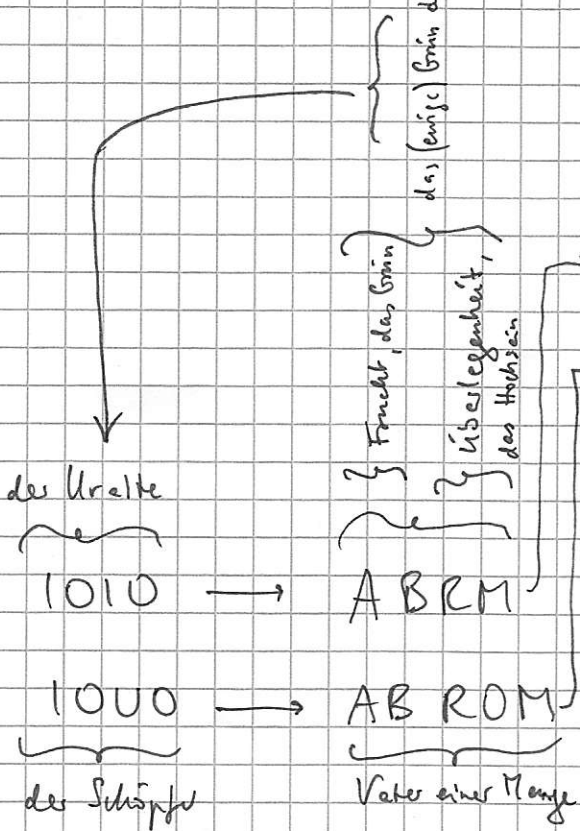 das (ewige) Grün d
Frucht, das Grün
Überlegenheit,
das Hochsein
der Uralte
1010 → ABRM
1OUO → AB ROM
der Schöpfer
Vater einer Menge